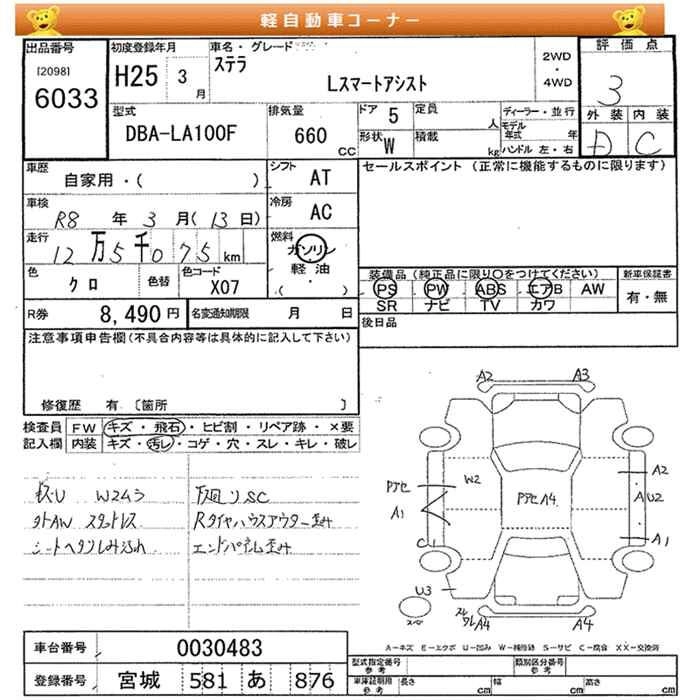 軽自動車コーナー
出品番号
[2098]
6033
初度登録年月
H25 3 月
車名・グレード
ステラ
Lスマートアシスト
2WD
・
4WD
評価点
3
外装 内装
D C
型式
DBA-LA100F
排気量
660
CC
ドア 5
定員 人
形状 W
積載 kg
ディーラー・並行
モデル年式 年
ハンドル 左・右
車歴
自家用・( )
シフト AT
セールスポイント (正常に機能するものに限ります)
車検
R8 年 3 月 (13 日)
冷房 AC
走行
12 万 5 千 075 km
燃料
ガソリン
軽油
・
( )
色
クロ
色替
色コード
X07
装備品 (純正品に限り○をつけてください)
PS PW ABS エアB AW
SR ナビ TV カワ
新車保証書
有・無
R券 8,490 円
名変通知期限 月 日
後日品
注意事項申告欄(不具合内容等は具体的に記入して下さい)
修復歴 有 〔箇所 〕
検査員 FW キズ・飛石・ヒビ割・リペア跡・×要
記入欄 内装 キズ・汚レ・コゲ・穴・スレ・キレ・破レ
下回りSC
外AW スタッドレス
Rタイヤハウスアウター歪み
シートヘタリしみ汚れ
エンドパネル歪み
A2 A3
W2
Pアセ
A1
C1
PアセA4
A2
A U2
A1
U3
スペ
A4 A4
A-キズ E-エクボ U-凹み W-補修跡 S-サビ C-腐食 XX-交換済
車台番号 0030483
登録番号 宮城 581 あ 876
型式指定番号
参考
類別区分番号
参考
車庫証明用
参考
長さ cm
幅 cm
高さ cm